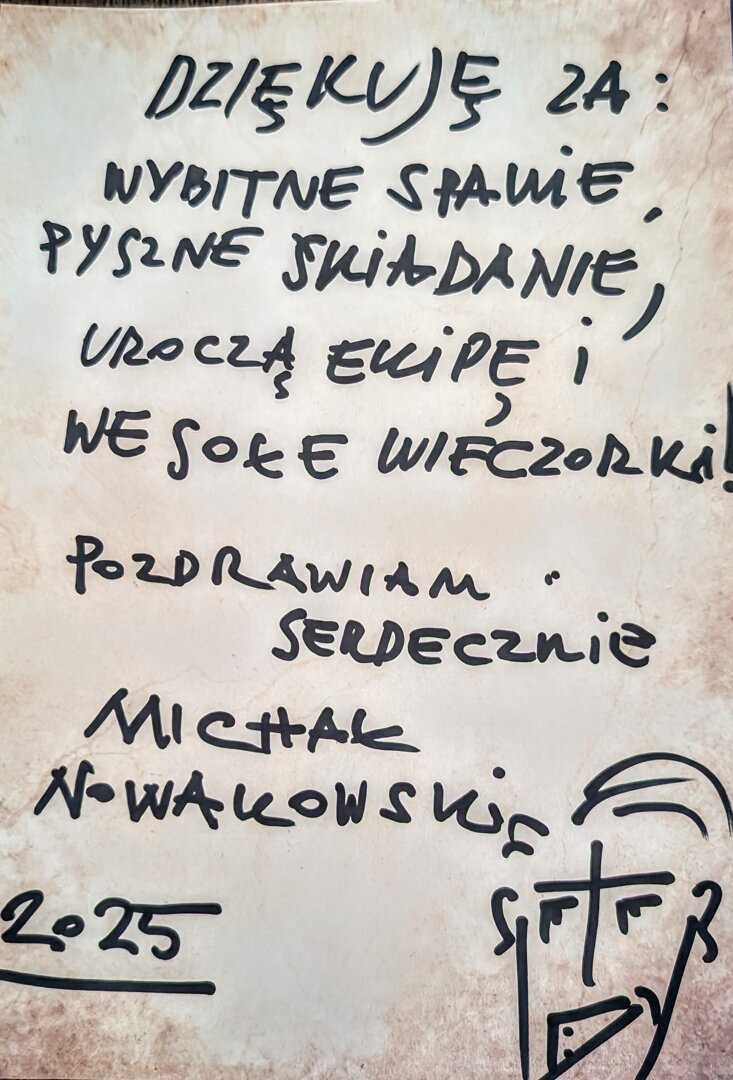 DZIĘKUJĘ ZA:
WYBITNE SPANIE,
PYSZNE ŚNIADANIE,
UROCZĄ EKIPĘ I
WESOŁE WIECZORKI!
POZDRAWIAM
SERDECZNIE
MICHAŁ
NOWAKOWSKI
2025